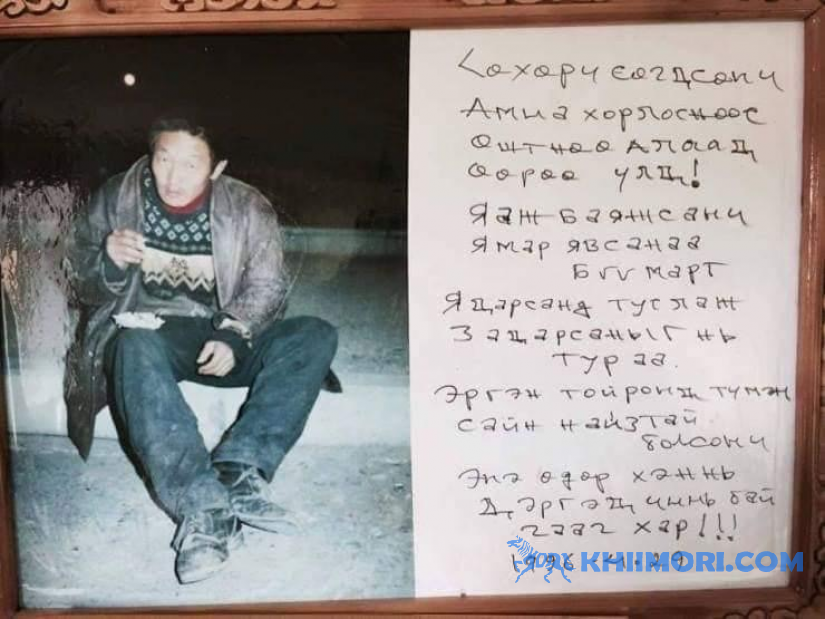 Сохорч согдсонч
Амиа хорлосноос
өштнөө алаад
өөрөө улд!
Яаж баяжсанч
Ямар явсанаа
Бүү март
Ядарсанд туслаж
Задарсаныг нь
тураа.
Эргэн тойронд түмэн
сайн найзтай
болсонч
Энэ өдөр хэннь
Дэргэд чиннь бай
хар!!!
KHIIMORI.COM